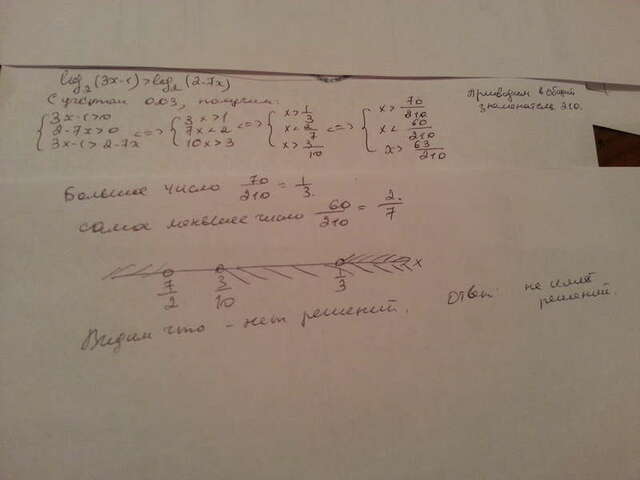 log₂(3x-1)>log₂(2-7x)
С учётом ОДЗ, получим:
{3x-1>0 <=> {3x>1 <=> {x>1/3 <=> {x>70/210
2-7x>0 7x<2 x<2/7 x<60/210
3x-1>2-7x 10x>3 x>3/10 x>63/210
Приводим в общий
знаменатель 210.
Большее число 70/210 = 1/3.
самое меньшее число 60/210 = 2/7
7/2 3/10 1/3 x
Видим что - нет решений.
Ответ: не имеет
решений.